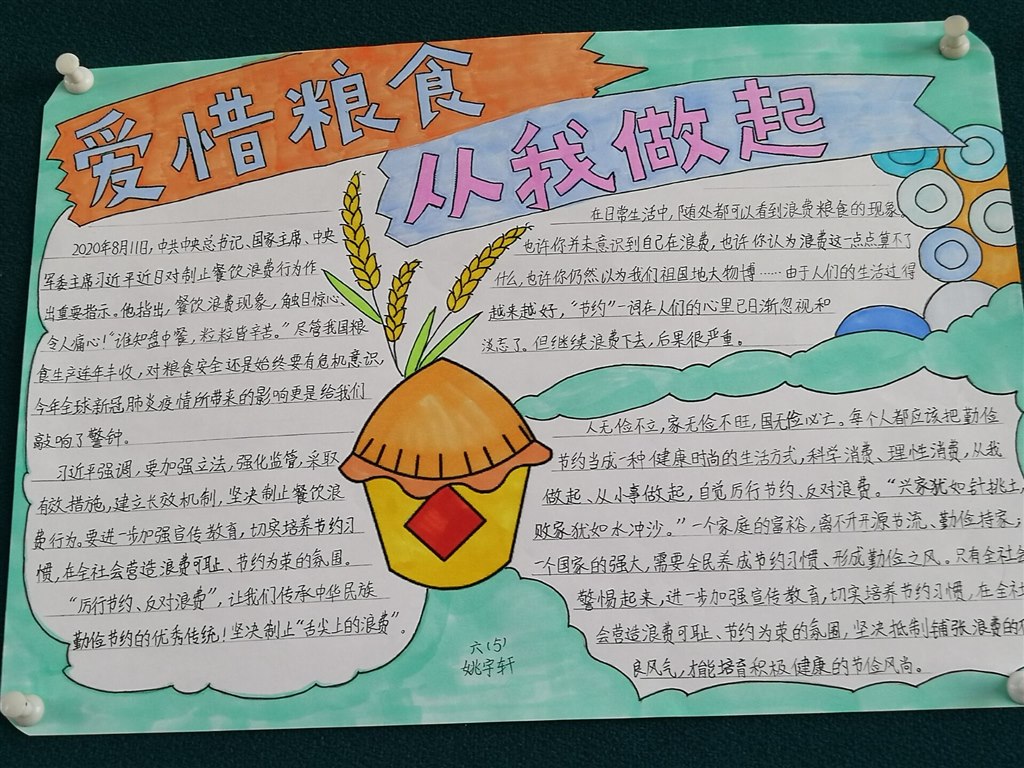 爱惜粮食
从我做起
2020年8月11日,中共中央总书记、国家主席、中央
军委主席习近平近日对制止餐饮浪费行为作
出重要指示。他指出,餐饮浪费现象,触目惊心、
令人痛心!“谁知盘中餐,粒粒皆辛苦。”尽管我国粮
食生产连年丰收,对粮食安全还是始终要有危机意识,
今年全球新冠肺炎疫情所带来的影响更是给我们
敲响了警钟。
习近平强调,要加强立法,强化监管,采取
有效措施,建立长效机制,坚决制止餐饮浪
费行为。要进一步加强宣传教育,切实培养节约习
惯,在全社会营造浪费可耻、节约为荣的氛围。
“厉行节约、反对浪费”,让我们传承中华民族
勤俭节约的优秀传统!坚决制止“舌尖上的浪费”。
在日常生活中,随处都可以看到浪费粮食的现象。
也许你并未意识到自己在浪费,也许你认为浪费这一点点算不了
什么,也许你仍然以为我们祖国地大物博……由于人们的生活过得
越来越好,“节约”一词在人们的心里已日渐忽视和
淡忘了。但继续浪费下去,后果很严重。
人无俭不立,家无俭不旺,国无俭必亡。每个人都应该把勤俭
节约当成一种健康时尚的生活方式,科学消费、理性消费,从我
做起、从小事做起,自觉厉行节约、反对浪费。“兴家犹如针挑土,
败家犹如水冲沙。”一个家庭的富裕,离不开开源节流、勤俭持家;
一个国家的强大,需要全民养成节约习惯、形成勤俭之风。只有全社会
警惕起来,进一步加强宣传教育,切实培养节约习惯,在全社
会营造浪费可耻、节约为荣的氛围,坚决抵制铺张浪费的不
良风气,才能培育积极健康的节俭风尚。
六(5)
姚宇轩